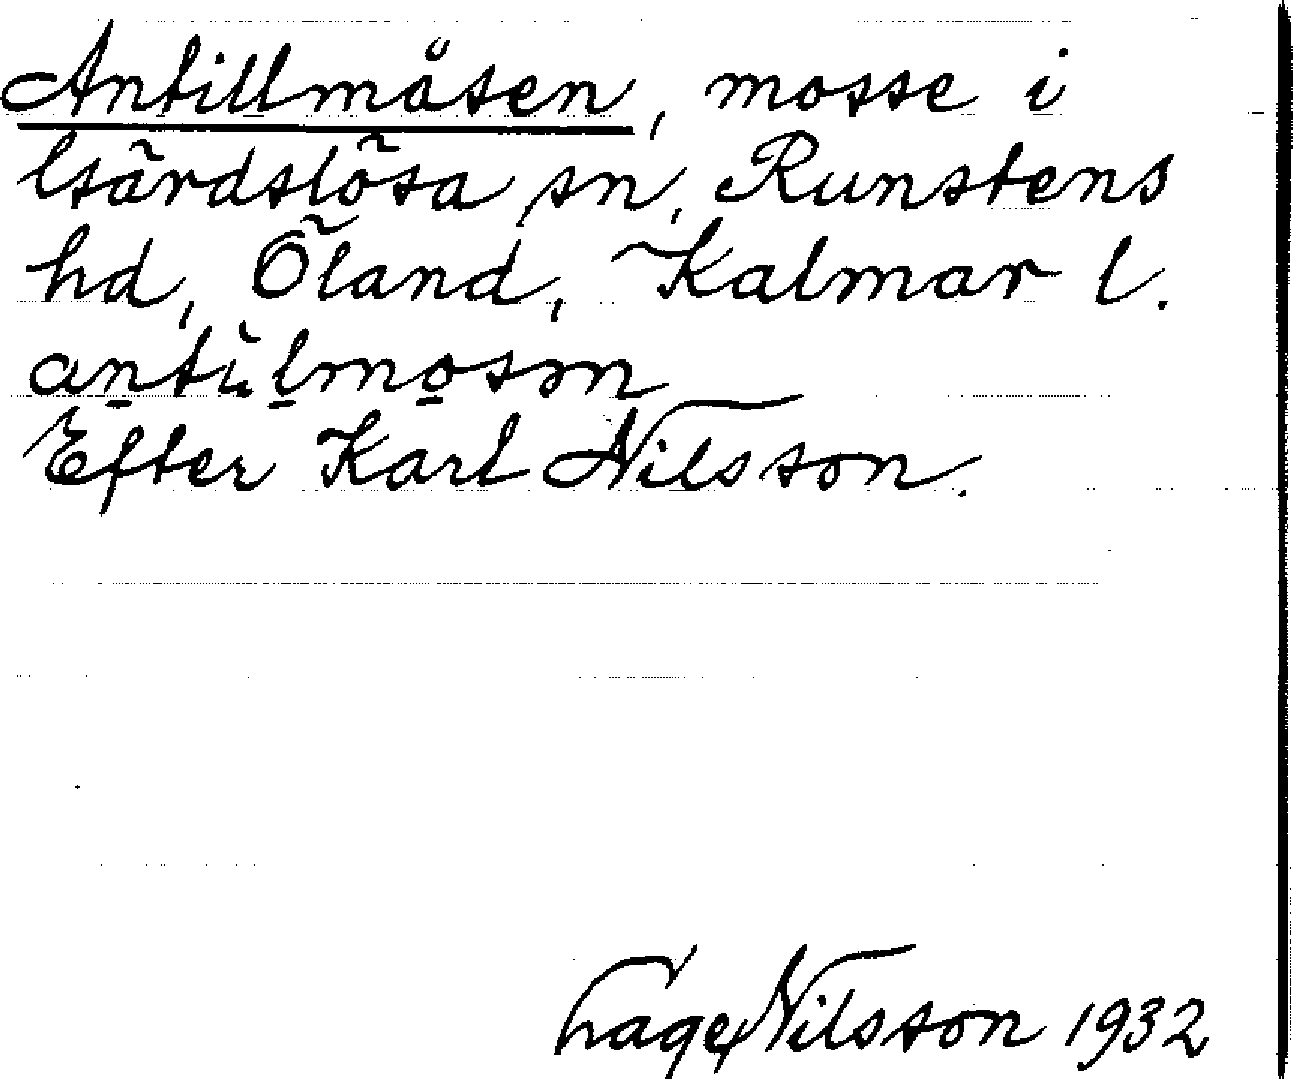 Antillmåsen, mosse i
Gärdslösa sn, Runstens
hd, Öland, Kalmar l.
Efter Karl Nilsson.
Nilsson 1932